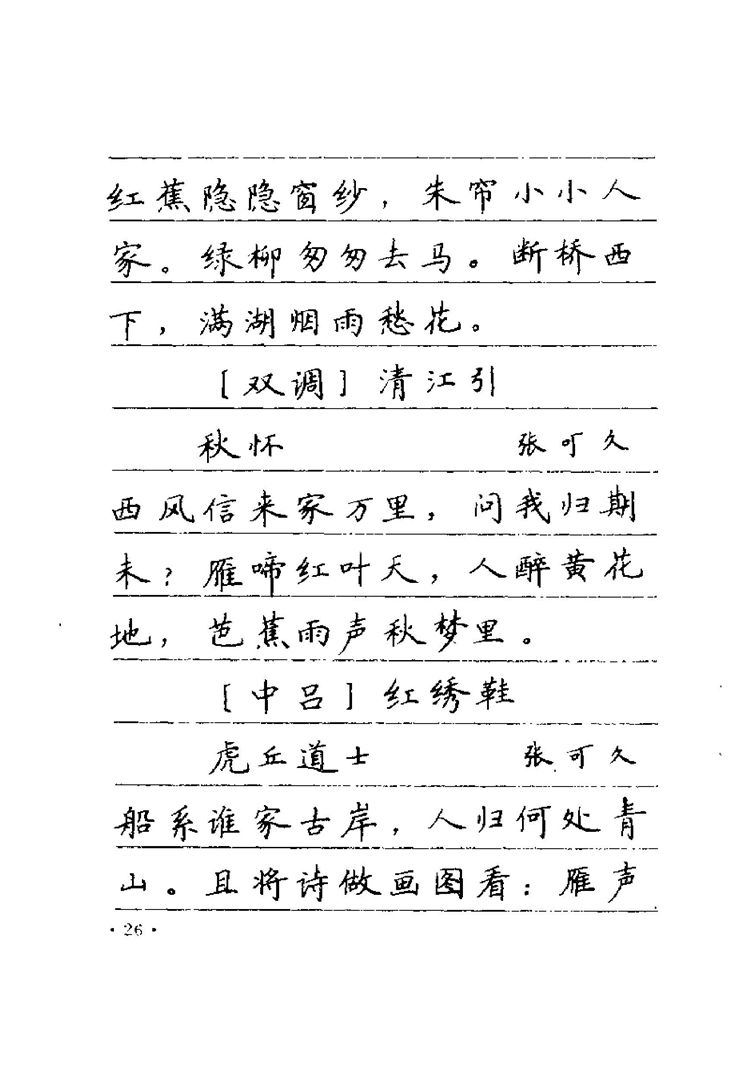 红蕉隐隐窗纱，朱帘小小人
家。绿柳匆匆去马。断桥西
下，满湖烟雨愁花。
［双调］清江引
秋怀 张可久
西风信来家万里，问我归期
未？雁啼红叶天，人醉黄花
地，芭蕉雨声秋梦里。
［中吕］红绣鞋
虎丘道士 张可久
船系谁家古岸，人归何处青
山。且将诗做画图看：雁声
·26·